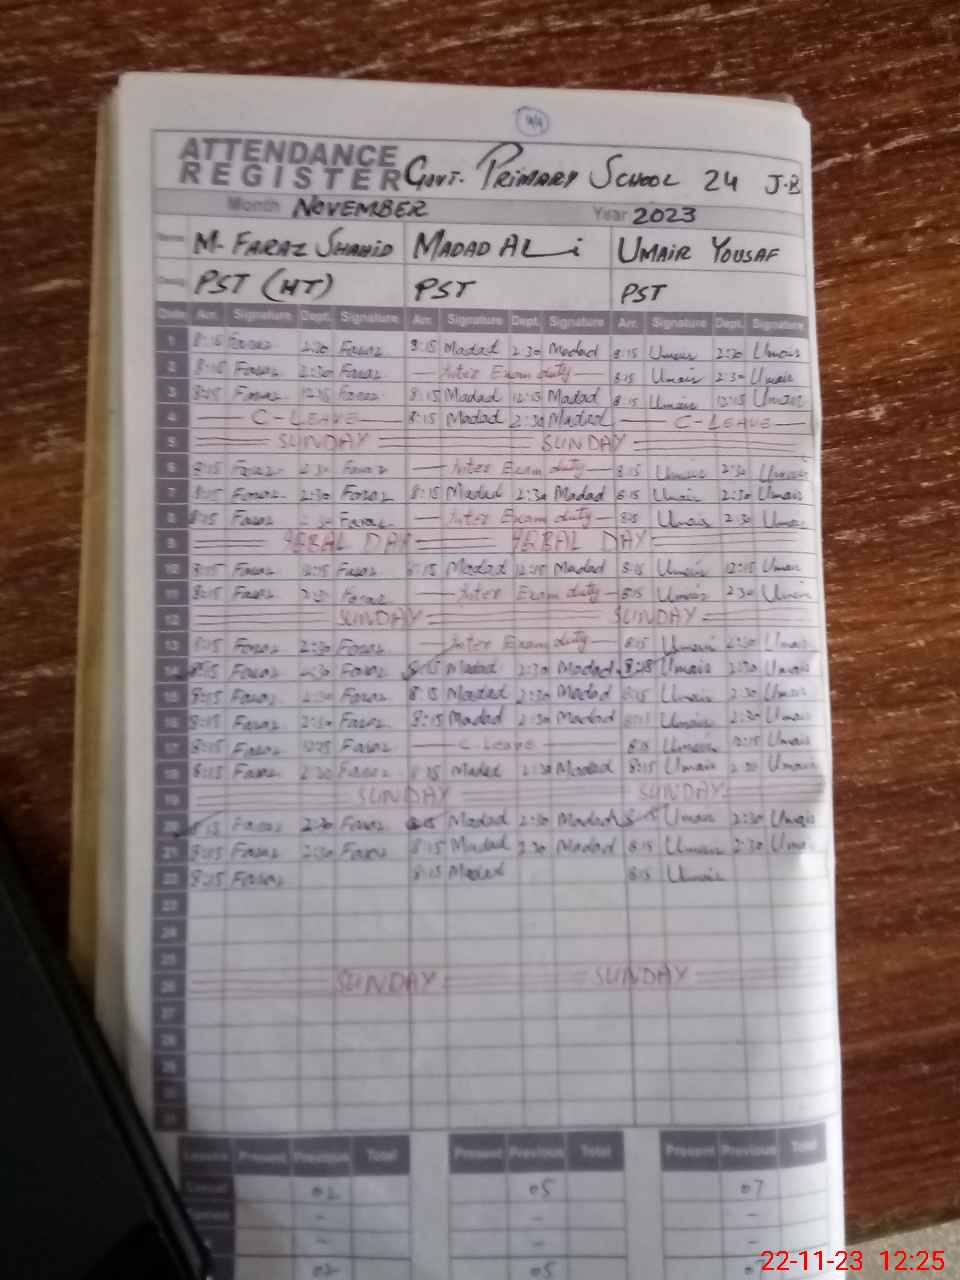 ATTENDANCE
REGISTER Govt. Primary School 24 J-B
Month November Year 2023
Name M. Faraz Shahid Madad Ali Umair Yousaf
PST (HT) PST PST
Date Arr. Signature Dept. Signature Arr. Signature Dept. Signature Arr. Signature Dept. Signature
1 8:15 Faraz 2:30 Faraz 8:15 Madad 2:30 Madad 8:15 Umair 2:30 Umair
2 8:15 Faraz 2:30 Faraz Inter Exam duty 8:15 Umair 2:30 Umair
3 8:15 Faraz 12:15 Faraz 8:15 Madad 12:15 Madad 8:15 Umair 12:15 Umair
4 C-Leave 8:15 Madad 2:30 Madad C-Leave
5 SUNDAY SUNDAY
6 8:15 Faraz 2:30 Faraz Inter Exam duty 8:15 Umair 2:30 Umair
7 8:15 Faraz 2:30 Faraz 8:15 Madad 2:30 Madad 8:15 Umair 2:30 Umair
8 8:15 Faraz 2:30 Faraz Inter Exam duty 8:15 Umair 2:30 Umair
9 DAY DAY
10 8:15 Faraz 12:15 Faraz 8:15 Madad 12:15 Madad 8:15 Umair 12:15 Umair
11 8:15 Faraz 2:30 Faraz Inter Exam duty 8:15 Umair 2:30 Umair
12 SUNDAY SUNDAY
13 8:15 Faraz 2:30 Faraz Inter Exam duty 8:15 Umair 2:30 Umair
14 8:15 Faraz 2:30 Faraz 8:15 Madad 2:30 Madad 8:15 Umair 2:30 Umair
15 8:15 Faraz 2:30 Faraz 8:15 Madad 2:30 Madad 8:15 Umair 2:30 Umair
16 8:15 Faraz 2:30 Faraz 8:15 Madad 2:30 Madad 8:15 Umair 2:30 Umair
17 8:15 Faraz 12:15 Faraz C-Leave 8:15 Umair 12:15 Umair
18 8:15 Faraz 2:30 Faraz 8:15 Madad 2:30 Madad 8:15 Umair 2:30 Umair
19 SUNDAY SUNDAY
20 8:15 Faraz 2:30 Faraz 8:15 Madad 2:30 Madad 8:15 Umair 2:30 Umair
21 8:15 Faraz 2:30 Faraz 8:15 Madad 2:30 Madad 8:15 Umair 2:30 Umair
22 8:15 Faraz 8:15 Madad 8:15 Umair
23
24
25
26 SUNDAY SUNDAY
27
28
29
30
31
Leaves Present Previous Total Present Previous Total Present Previous Total
Casual 02 05 07
- - -
- - -
02 05
22-11-23 12:25